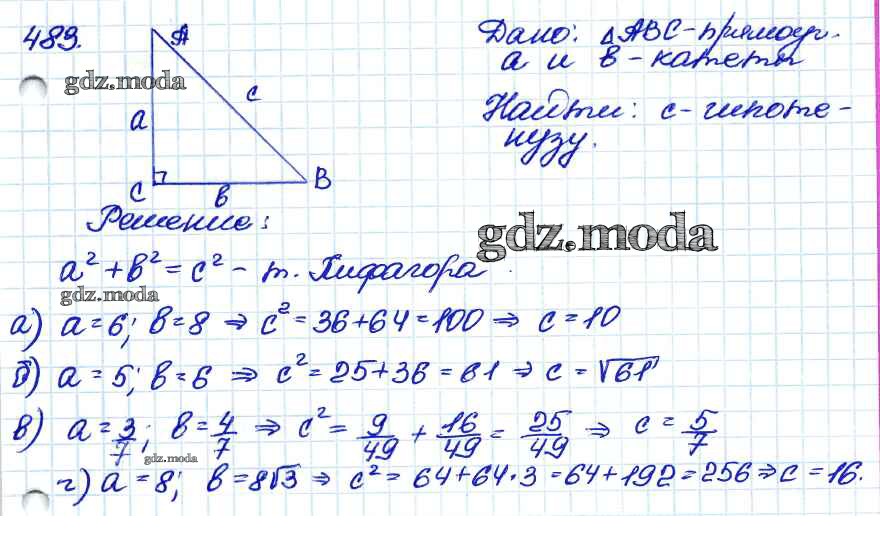 489.
A
Дано: △ABC-прямоуг.
a и b - катеты
gdz.moda
c
a
Найти: c - гипоте-
нузу.
C
b
B
Решение:
gdz.moda
a² + b² = c² - т. Пифагора.
gdz.moda
а) a = 6; b = 8 ⇒ c² = 36 + 64 = 100 ⇒ c = 10
б) a = 5; b = 6 ⇒ c² = 25 + 36 = 61 ⇒ c = √61
в) a = 3/7; b = 4/7 ⇒ c² = 9/49 + 16/49 = 25/49 ⇒ c = 5/7
gdz.moda
г) a = 8; b = 8√3 ⇒ c² = 64 + 64 · 3 = 64 + 192 = 256 ⇒ c = 16.